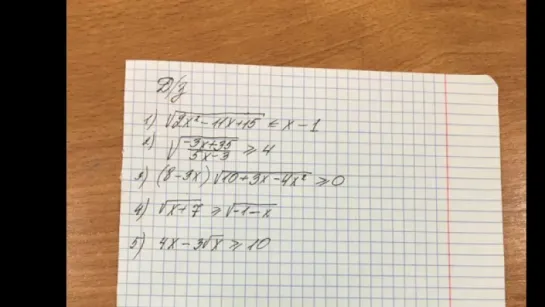 Д/з
1) √(2x² - 11x + 15) < x - 1
2) √((-3x + 35)/(5x - 3)) ⩾ 4
3) (8 - 3x)√(10 + 3x - 4x²) ⩾ 0
4) √(x + 7) ⩾ √(-1 - x)
5) 4x - 3√x ⩾ 10